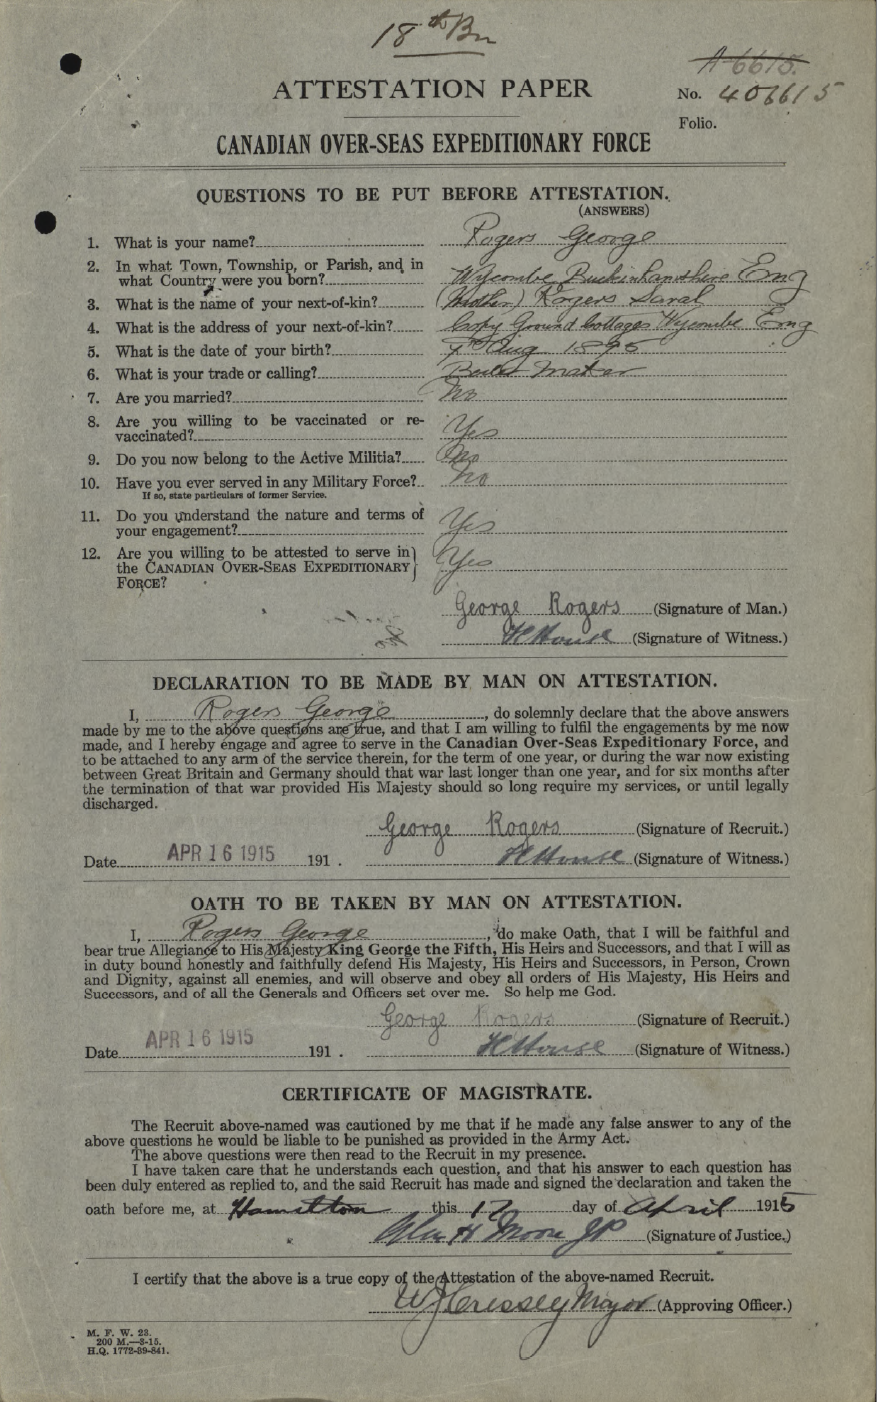 18th Bn
A 6615.
ATTESTATION PAPER
No. 406615
Folio.
CANADIAN OVER-SEAS EXPEDITIONARY FORCE
QUESTIONS TO BE PUT BEFORE ATTESTATION.
(ANSWERS)
1. What is your name? Rogers George
2. In what Town, Township, or Parish, and in
what Country were you born? Wycombe Buckinhamshire Eng
3. What is the name of your next-of-kin? (Mother) Rogers Sarah
4. What is the address of your next-of-kin? Ground Cottages Wycombe Eng
5. What is the date of your birth? Aug 1895
6. What is your trade or calling?
7. Are you married? No
8. Are you willing to be vaccinated or re-
vaccinated? Yes
9. Do you now belong to the Active Militia? No
10. Have you ever served in any Military Force? No
If so, state particulars of former Service.
11. Do you understand the nature and terms of
your engagement? Yes
12. Are you willing to be attested to serve in
the CANADIAN OVER-SEAS EXPEDITIONARY Yes
FORCE?
George Rogers (Signature of Man.)
H House (Signature of Witness.)
DECLARATION TO BE MADE BY MAN ON ATTESTATION.
I, Rogers George, do solemnly declare that the above answers
made by me to the above questions are true, and that I am willing to fulfil the engagements by me now
made, and I hereby engage and agree to serve in the Canadian Over-Seas Expeditionary Force, and
to be attached to any arm of the service therein, for the term of one year, or during the war now existing
between Great Britain and Germany should that war last longer than one year, and for six months after
the termination of that war provided His Majesty should so long require my services, or until legally
discharged.
George Rogers (Signature of Recruit.)
Date APR 16 1915 191 . H House (Signature of Witness.)
OATH TO BE TAKEN BY MAN ON ATTESTATION.
I, Rogers George, do make Oath, that I will be faithful and
bear true Allegiance to His Majesty King George the Fifth, His Heirs and Successors, and that I will as
in duty bound honestly and faithfully defend His Majesty, His Heirs and Successors, in Person, Crown
and Dignity, against all enemies, and will observe and obey all orders of His Majesty, His Heirs and
Successors, and of all the Generals and Officers set over me. So help me God.
George Rogers (Signature of Recruit.)
Date APR 16 1915 191 . H House (Signature of Witness.)
CERTIFICATE OF MAGISTRATE.
The Recruit above-named was cautioned by me that if he made any false answer to any of the
above questions he would be liable to be punished as provided in the Army Act.
The above questions were then read to the Recruit in my presence.
I have taken care that he understands each question, and that his answer to each question has
been duly entered as replied to, and the said Recruit has made and signed the declaration and taken the
oath before me, at Hamilton this day of April 1915
H Moore JP (Signature of Justice.)
I certify that the above is a true copy of the Attestation of the above-named Recruit.
Major (Approving Officer.)
M. F. W. 23.
200 M.—3-15.
H.Q. 1772-39-841.